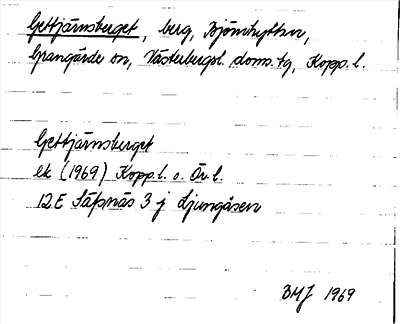 Gettjärnsberget, berg, Björnhyttan,
Grangärde sn, Västerbergsl. doms. tg, Kopp. l.
Gettjärnsberget
ek (1969) Kopp. l. o. Ör. l.
12E Säfsnäs 3 j Ljungåsen
BMJ 1969